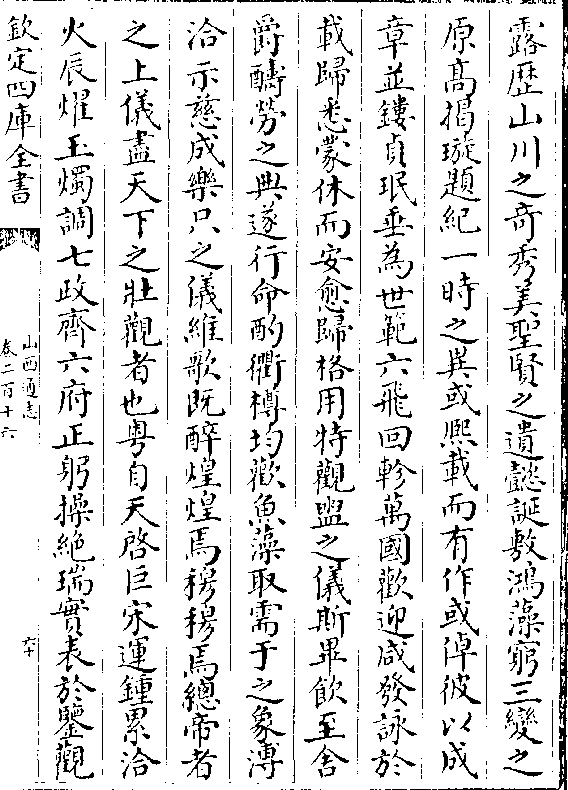 露歴山川之竒秀美聖賢之遺懿誕敷鴻藻窮三變之
原髙揭璇題紀一時之異或熈載而有作或倬彼以成
章並鏤貞珉垂為世範六飛回軫萬國歡迎咸發詠於
載歸悉蒙休而安愈歸格用特觀盥之儀斯畢飲至舎
爵醻勞之典遂行命酌衢樽均歡魚藻取需于之象溥
洽示慈成樂只之儀維歌既醉煌煌焉穆穆焉總帝者
之上儀盡天下之壯觀者也粤自天啓巨宋運鍾累洽
火辰燿玉燭調七政齊六府正躬操絶瑞實表於鑒觀
欽定四庫全書
山西通志
卷二百十六
六十